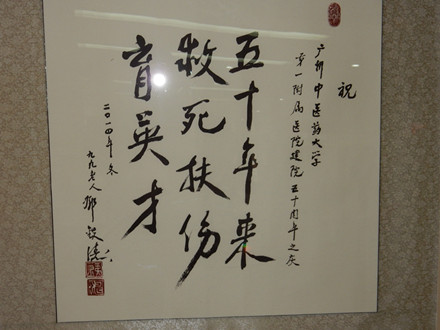 祝
广州中医药大学
第一附属医院建院五十周年之庆
五十年来
救死扶伤
育英才
二〇一四年冬
九九老人邓铁涛